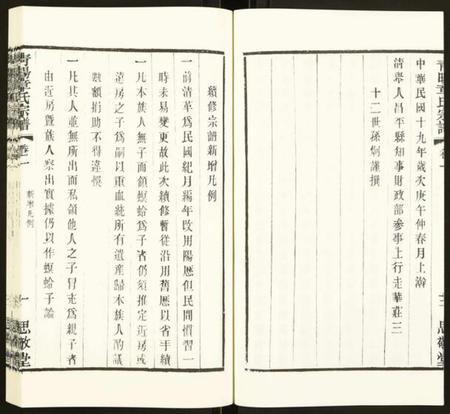 中華民國十九年歲次庚午仲春月上澣
清舉人昌平縣知事財政部參事上行走華莊三
十二世孫炯謹撰
思敬堂
續修宗譜新增凡例
一前清革爲民國紀月編年改用陽歷但民間慣習一
時未易變更故此次續修暫從沿用舊歷以省手續
一凡本族人無子而領螟蛉爲子者仍須推定近房或
遠房之子爲嗣以重血統所有遺產歸本族人酌議
數額捐助不得違悞
一凡其人並無所出而私領他人之子冒充爲親子者
由近房暨族人察出實據仍以作螟蛉子論
卷一
新增凡例
一
思敬堂